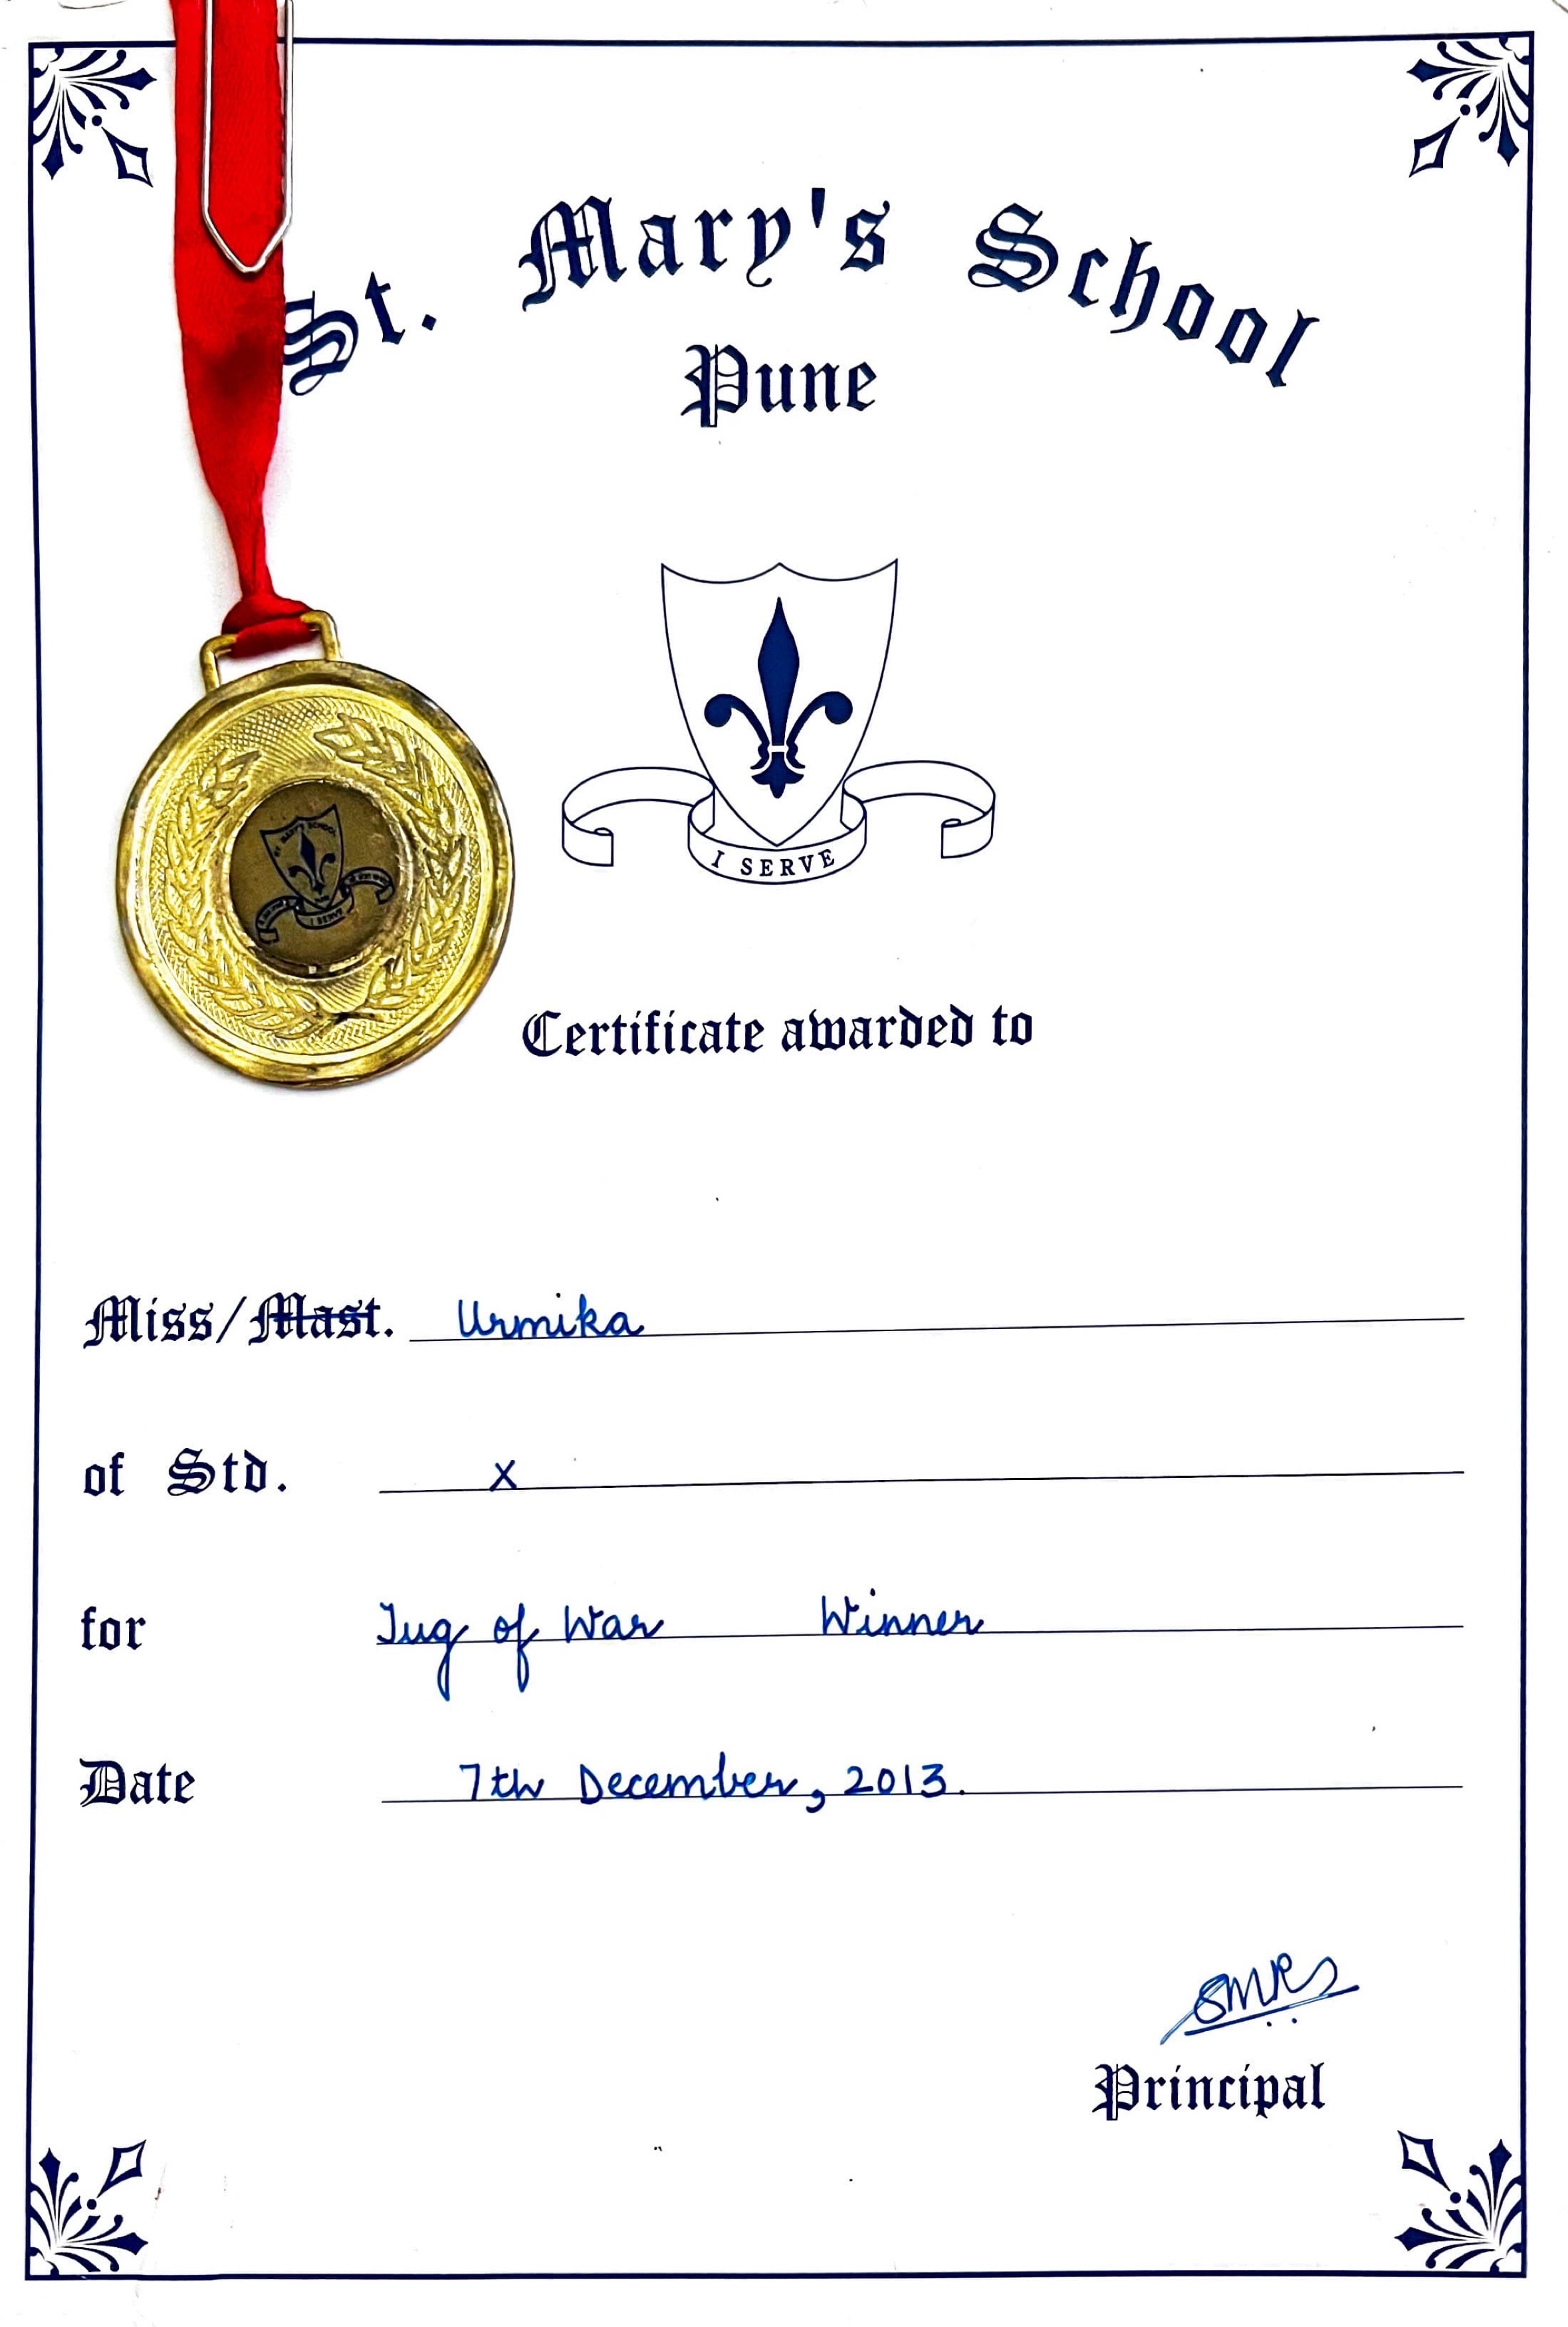 St. Mary's School
Pune
I SERVE
I SERVE
Certificate awarded to
Miss/Mast. Urmika
of Std. X
for Tug of War Winner
Date 7th December, 2013.
Principal